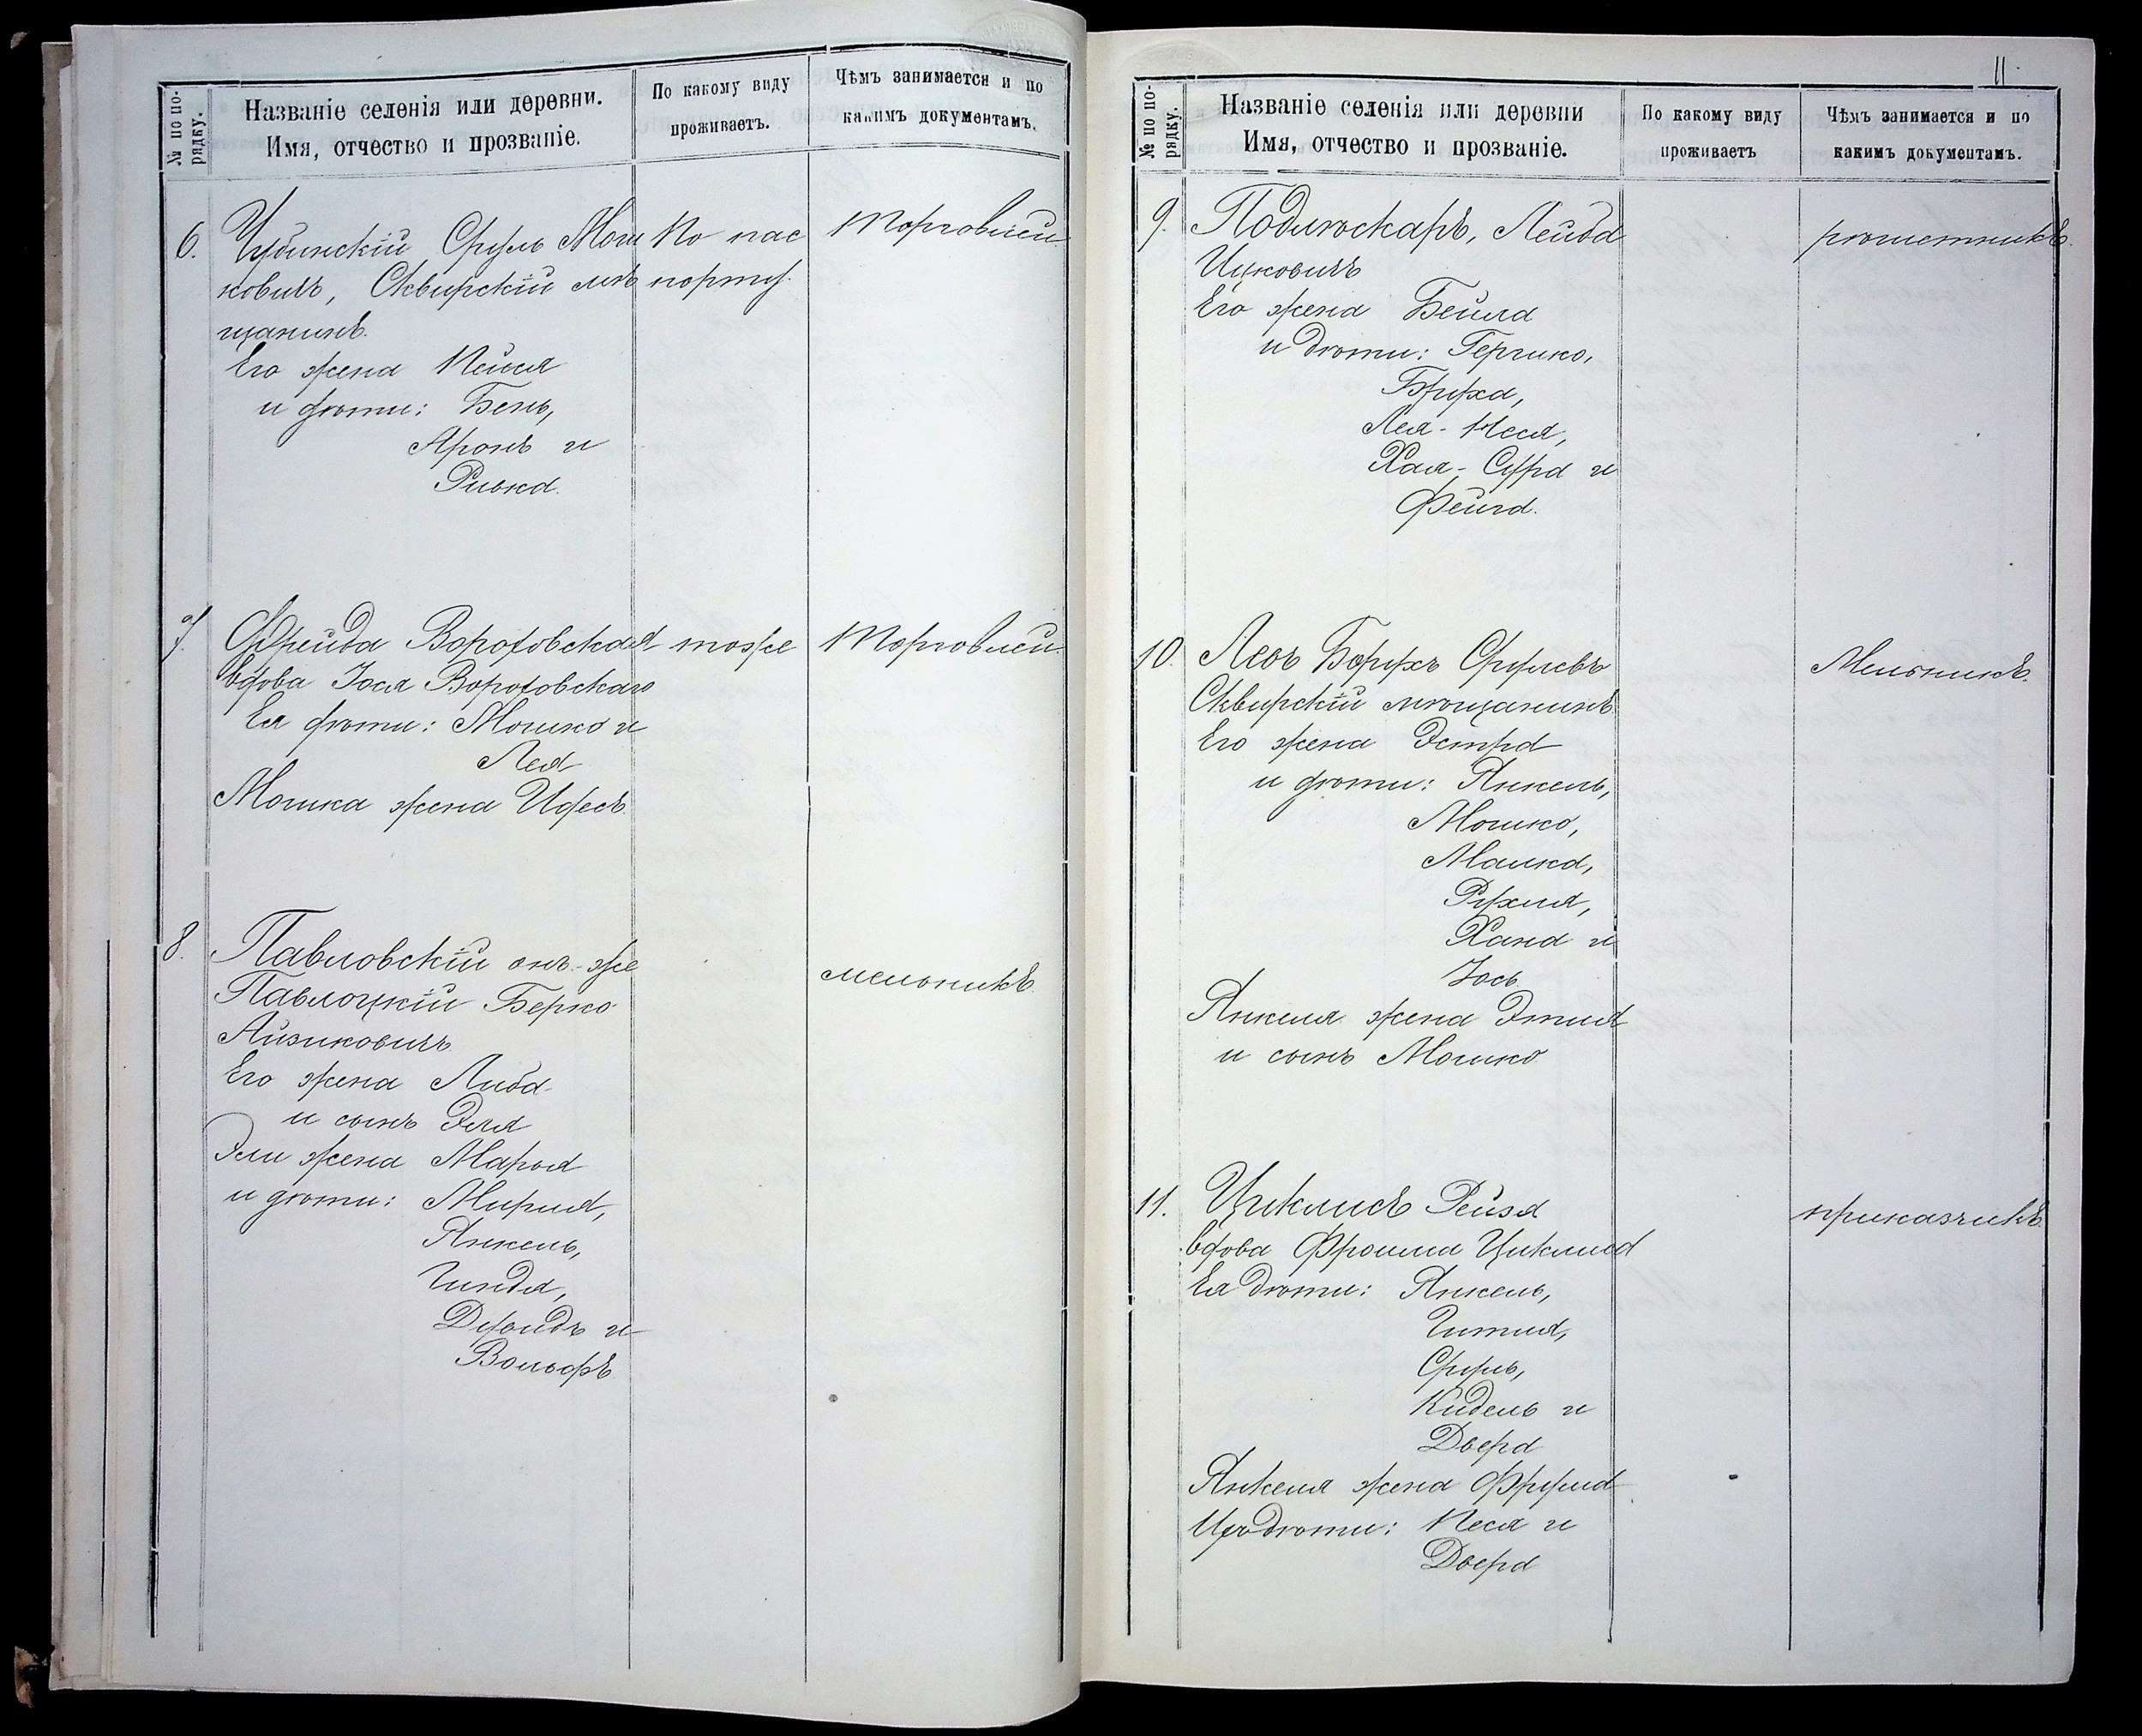 № по по-
рядку.
Названіе селенія или деревни.
Имя, отчество и прозваніе.
По какому виду
проживаетъ.
Чѣмъ занимается и по
какимъ документамъ.
6. Чудинскій Сруль Мош
ковичъ, Сквирскій мѣ
щанинъ.
По пас
портѹ.
Торговлей
Его жена Пейся
и дѣти: Бень,
Аронъ и
Ривка.
7. Фрейда Вороховская
тоже
Торговлей.
вдова Іося Вороховскаго
Ея дѣти: Мошко и
Лея
Мошка жена Ифесъ.
8. Павловскій онъ-же
мельникъ.
Павлоцкій Берко
Айзиковичъ.
Его жена Либа
и сынъ Эля
Эли жена Марья
и дѣти: Мирля,
Янкель,
Гинда,
Дувидъ и
Вольфъ
11.
№ по по-
рядку.
Названіе селенія или деревни
Имя, отчество и прозваніе.
По какому виду
проживаетъ
Чѣмъ занимается и по
какимъ документамъ.
9. Подлюскаръ, Лейба
рѣшетникъ.
Ицковичъ
Его жена Бейла
и дѣти: Гершко,
Бруха,
Лея-Неся,
Хая-Сура и
Фейга.
10. Лео́ъ Борухъ Срулевъ
Мельникъ.
Сквирскій мѣщанинъ.
Его жена Эстра
и дѣти: Янкель,
Мошко,
Малка,
Рухля,
Хана и
Іось.
Янкеля жена Этля
и сынъ Мошко
11. Циклисъ Рейзя
приказчикъ.
вдова Фроима Циклиса
Ея дѣти: Янкель,
Гитля,
Сруль,
Кидель и
Двера
Янкеля жена Фрума
Ихъ дѣти: Песя и
Двера